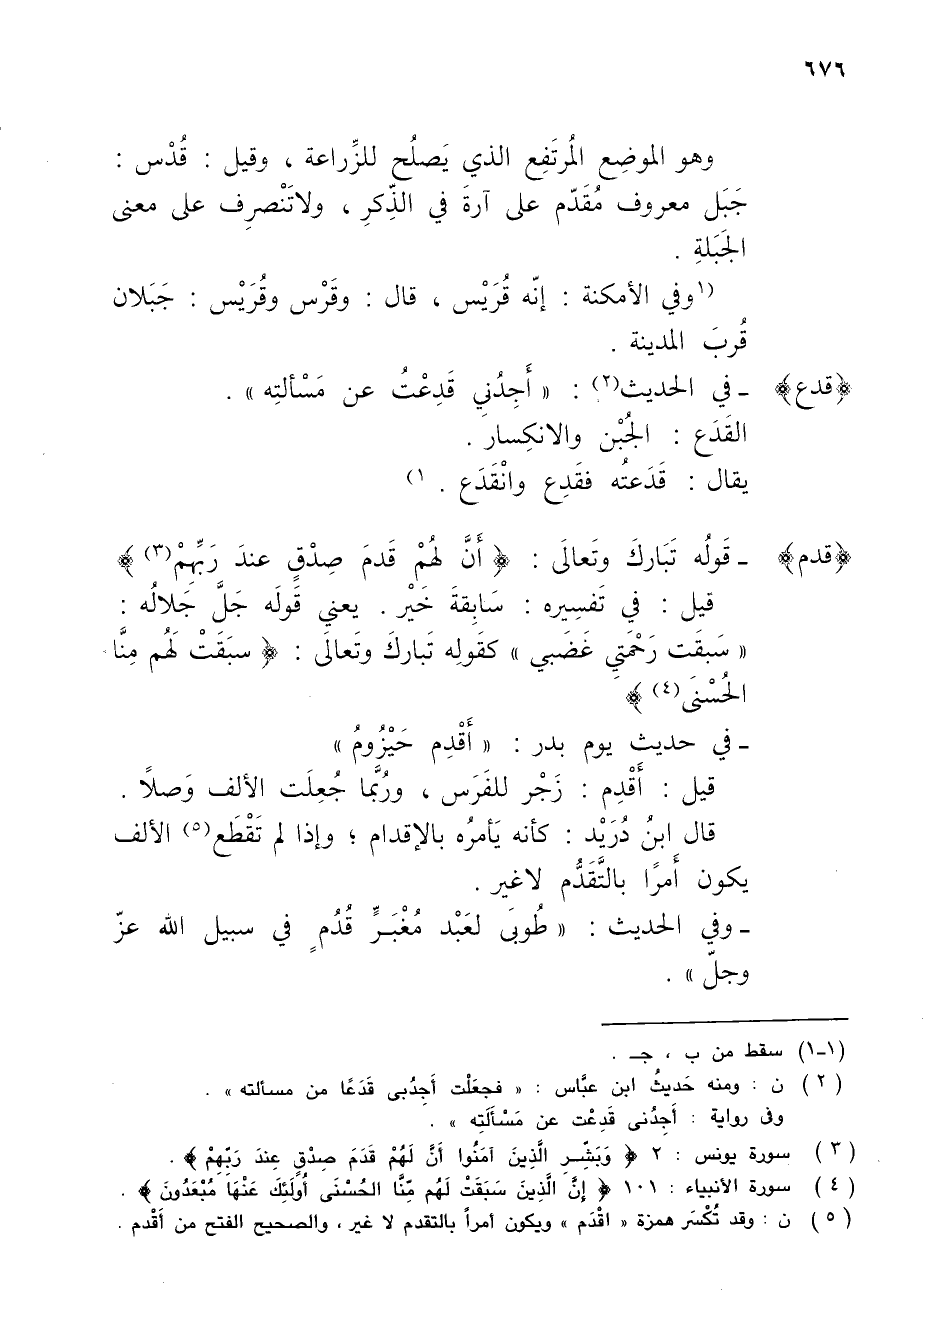 ٦٧٦
وهو الموضِع المُرتَفِع الذي يَصلُح للزِّراعة ، وقيل : قُدْس :
جَبَل معروف مُقَدّم على آرةَ في الذِّكرِ ، ولاتَنْصرِف على معنى
الجَبَلةِ .
(١وفي الأمكنة : إنّه قُرَيْس ، قال : وقَرْس وقُرَيْس : جَبَلان
قُربَ المدينة .
﴿قدع﴾ ـ في الحديث(٢) : « أَجِدُني قَدِعْتُ عن مَسْألتِه » .
القَدَع : الجُبْن والانكِسارَ .
يقال : قَدَعتُه فقَدِع وانْقَدَع . ١)
﴿قدم﴾ ـ قَولُه تَبارَكَ وتَعالَى : ﴿ أَنَّ لَهُمْ قَدمَ صِدْقٍ عندَ رَبِّهِمْ(٣) ﴾
قيل : في تَفسِيره : سَابِقةَ خَيْر . يعني قَولَه جَلَّ جَلالُه :
« سَبقَت رَحْمَتي غَضَبي » كقَولِه تَبارَكَ وتَعالَى : ﴿ سبَقَتْ لَهُم مِنَّا
الحُسْنَى(٤) ﴾
ـ في حديث يوم بدر : « أَقْدِم حَيْزُومُ »
قيل : أَقْدِم : زَجْر للفَرَس ، ورُبَّما جُعِلَت الألف وَصلاً .
قال ابنُ دُرَيْد : كأنه يَأمرُه بالإقدام ؛ وإذا لم تَقْطَع(٥) الألف
يكون أَمرًا بالتَّقَدُّم لاغير .
ـ وفي الحديث : « طُوبَى لعَبْد مُغْبَرٍّ قُدُمٍ في سبيل الله عزّ
وجلّ » .
(١-١) سقط من ب ، جـ .
(٢) ن : ومنه حَديثُ ابن عبَّاس : « فجعَلْت أَجِدُبى قَدَعًا من مسألته » .
وفى رواية : أجِدُنى قَدِعْت عن مَسْألَتِه » .
(٣) سورة يونس : ٢ ﴿ وَبَشِّرِ الَّذِينَ آمَنُوا أنَّ لَهُمْ قَدَمَ صِدْقٍ عِندَ رَبِّهِمْ ﴾ .
(٤) سورة الأنبياء : ١٠١ ﴿ إنَّ الَّذِينَ سَبَقَتْ لَهُم مِنَّا الحُسْنَى أُولَئِكَ عَنْهَا مُبْعَدُونَ ﴾ .
(٥) ن : وقد تُكْسَر همزة « اقْدَم » ويكون أمراً بالتقدم لا غير ، والصحيح الفتح من أَقْدم .